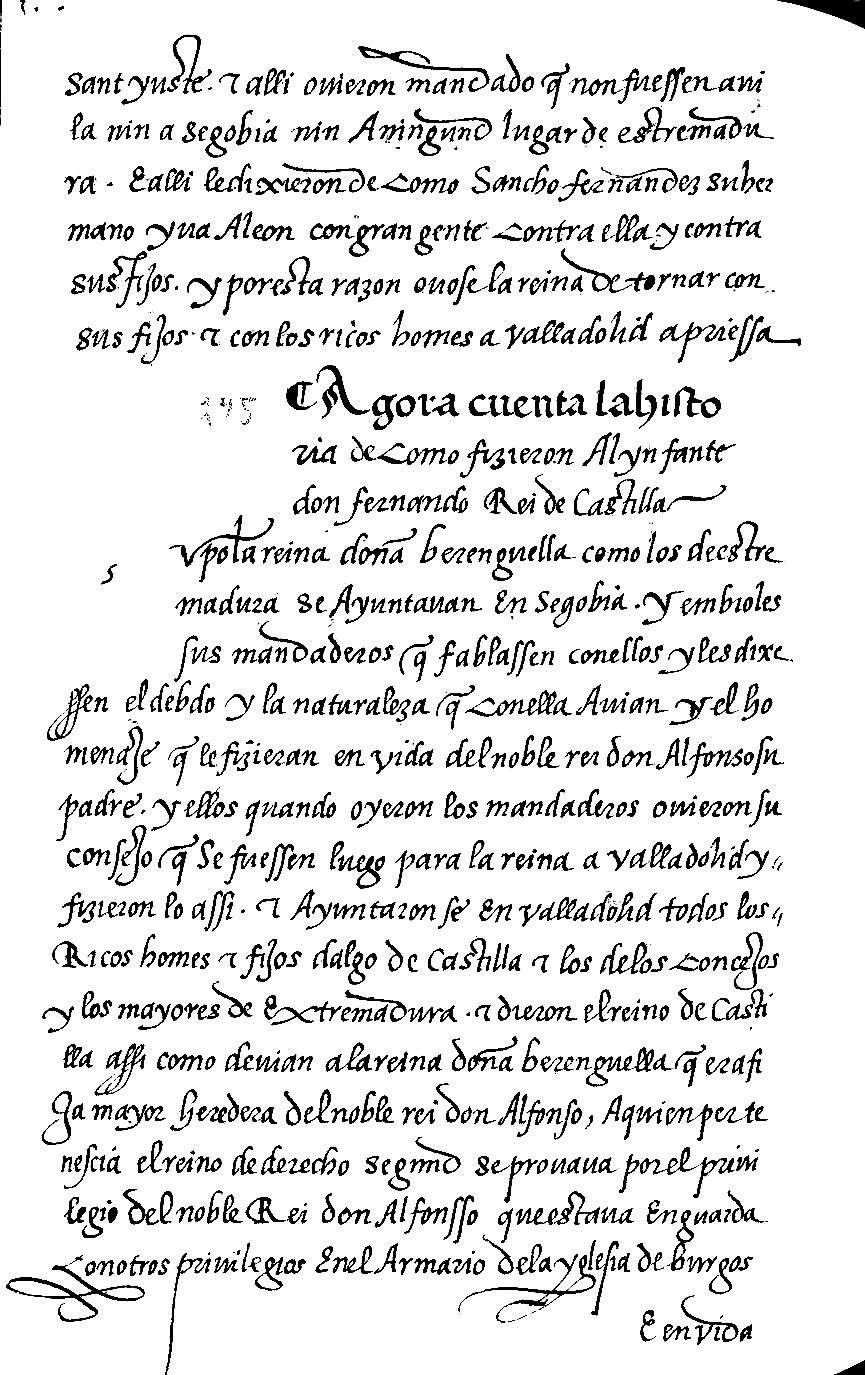 Sant yuste. τ alli ouieron mandado q̃ non fuessen aui
la nin a segobia nin Aningund lugar de estremadu
ra. Ealli le dixieron de como Sancho fernandez su her
mano yua Aleon con gran gente contra ella y contra
sus fijos. y por esta razon ouose la reina de tornar con
sus fijos τ con los ricos homes a valladolid apriessa
¶ Agora cuenta la histo
ria de como fizieron Al ynfante
don fernando Rei de Castilla
Upo la reina doña berenguella como los de estre
madura se Ayuntauan En segobia. y embioles
sus mandaderos q̃ fablassen con ellos y les dixe
ssen el debdo y la naturaleza q̃ con ella Auian y el ho
menaje q̃ le fizieran en vida del noble rei don Alfonso su
padre. y ellos quando oyeron los mandaderos ouieron su
consejo q̃ se fuessen luego para la reina a valladolid y
fizieron lo assi. τ Ayuntaron se En valladolid todos los
Ricos homes τ fijos dalgo de Castilla τ los de los concejos
y los mayores de Extremadura. τ dieron el reino de Casti
lla assi como deuian a la reina doña berenguella q̃ era fi
Ja mayor heredera del noble rei don Alfonso, A quien perte
nescia el reino de derecho segund se prouaua por el priui
legio del noble Rei don Alfonsso que estaua En guarda
con otros priuilegios En el Armario de la yglesia de burgos
E en vida